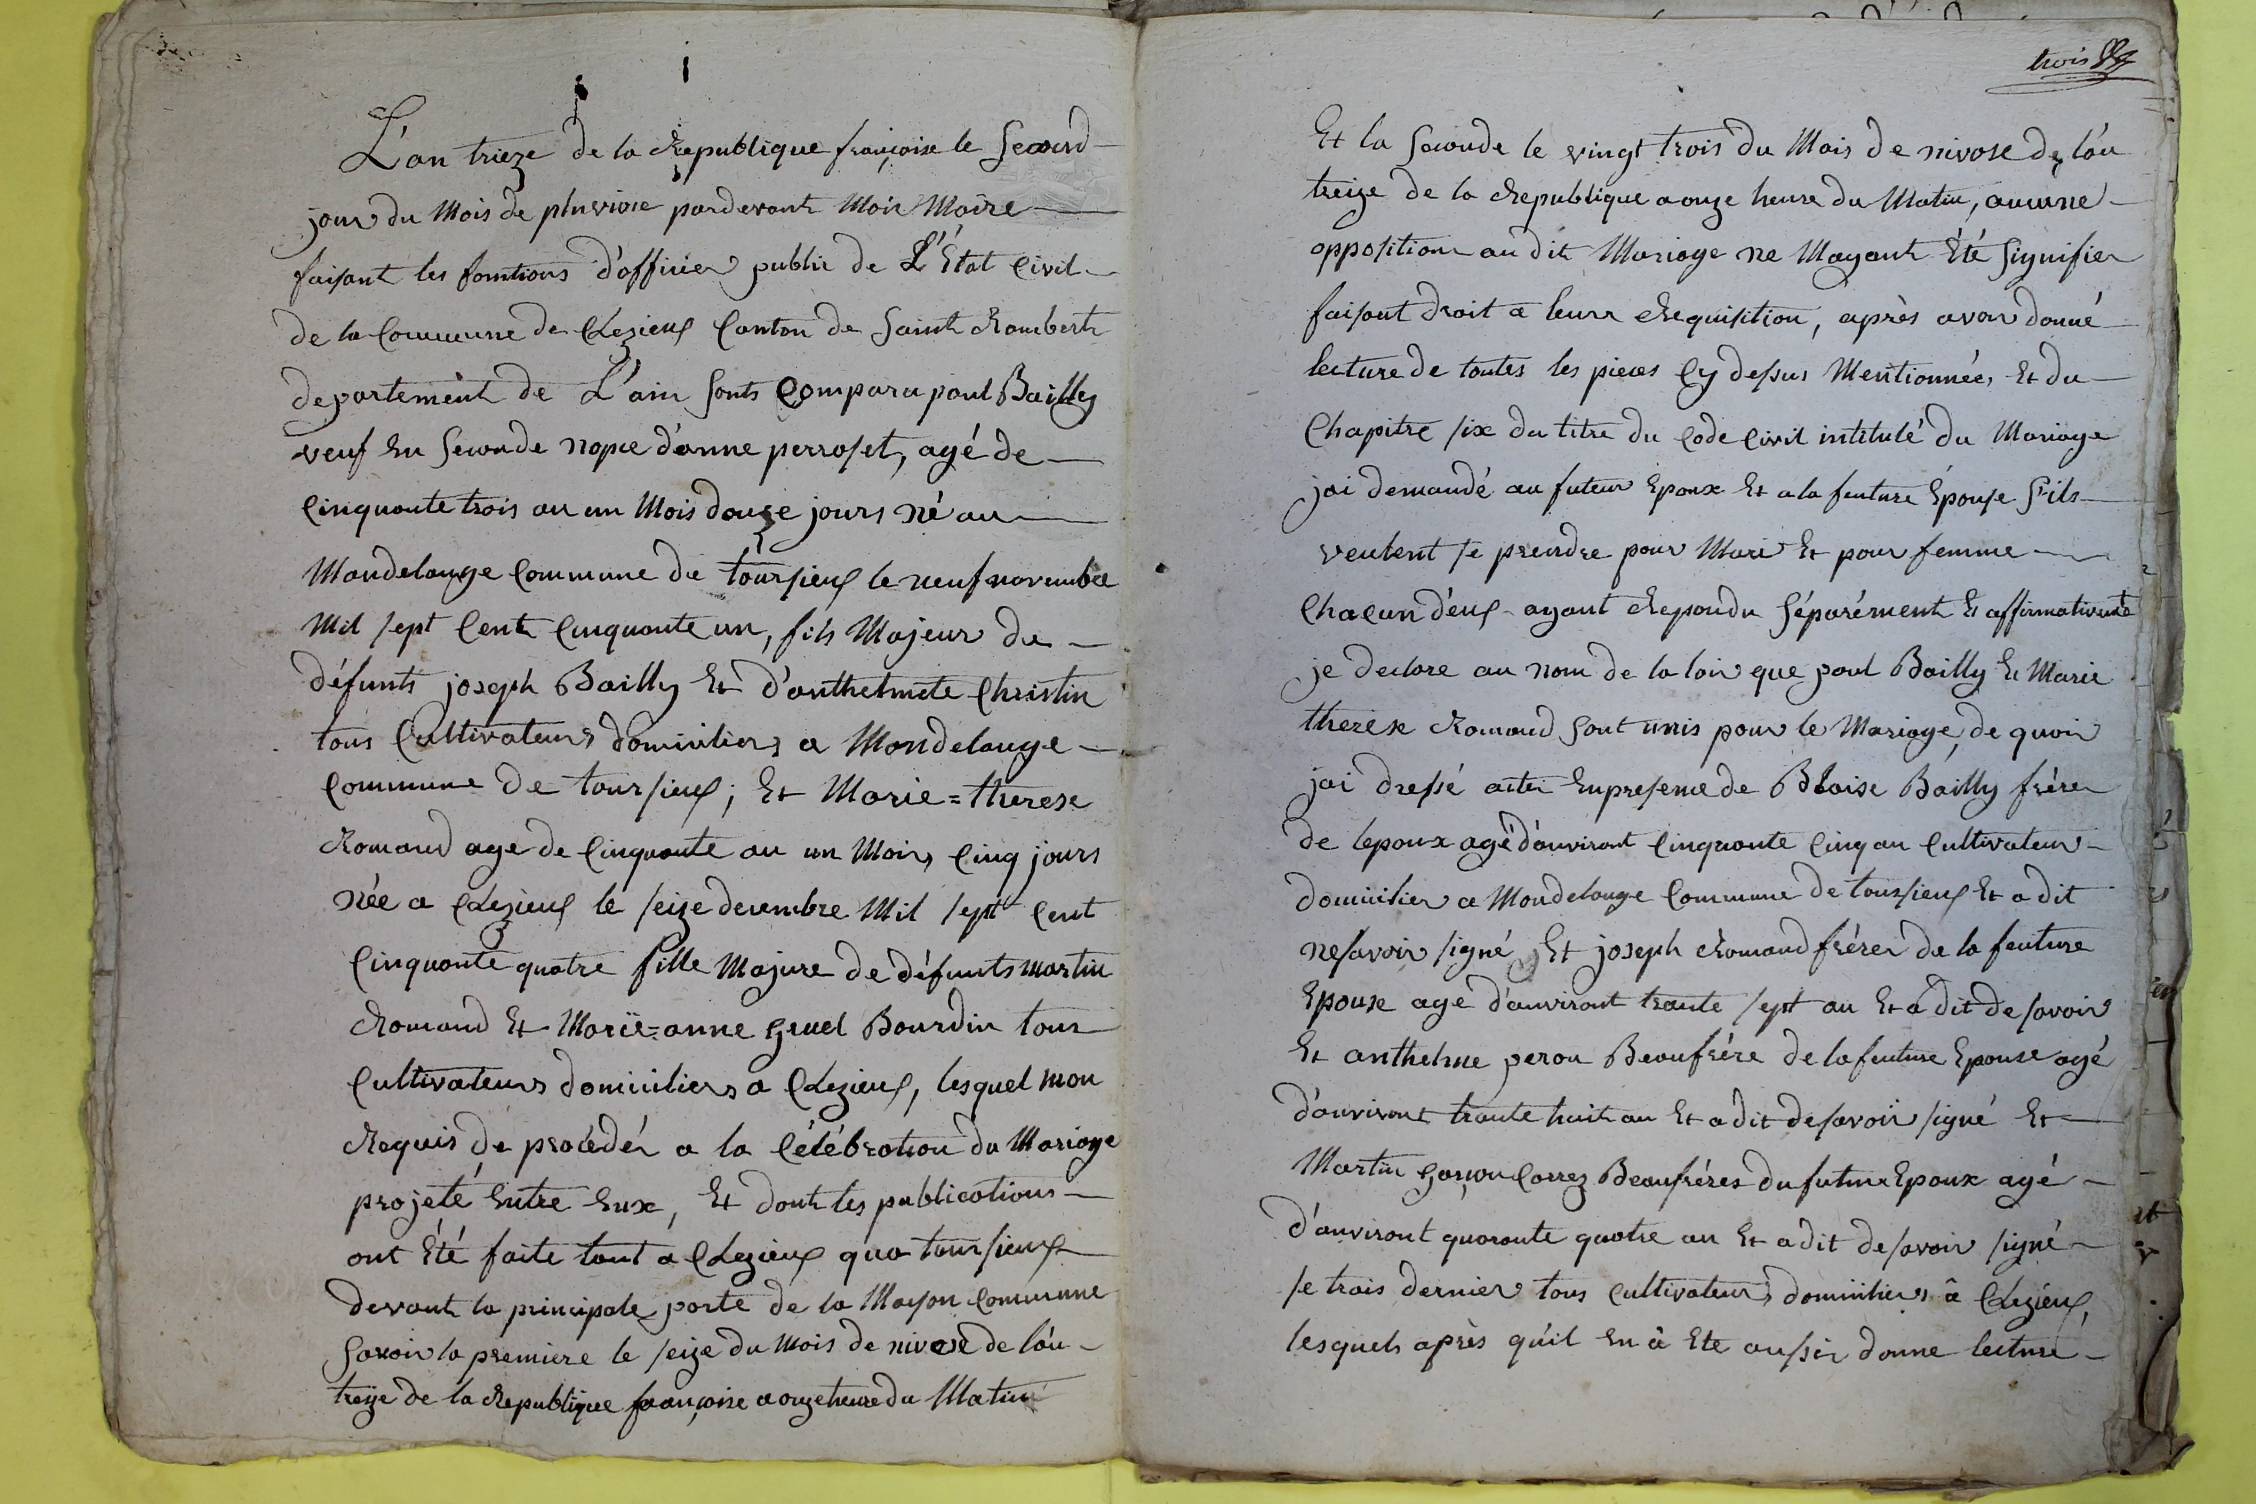 L'an trieze de la Republique françoise le Second
jour du Mois de pluviose pardevant Moir Maire
faisant les fonctions d'officier public de L'État Civil
de la Commune de Clezieux Canton de Saint Rambert
departement de L'ain sonts Comparu paul Bailly
veuf En Seconde nopce d'anne perroset, agé de
Cinquante trois an un Mois douze jours né au
Mondelange Commune de toursieux le neuf novembre
Mil sept Cent Cinquante un, fils Majeur du
défunts joseph Bailly Et d'anthelmete Christin
tous Cultivateurs domiciliers a Mondelange
Commune De toursieux; Et Marie=therese
Romand age de Cinquante an un Mois, Cinq jours
née a Clezieux le seize decembre Mil sept Cent
Cinquante quatre fille Majure de défunts martin
Romand Et Marie=anne Bourdin tous
Cultivateurs domiciliers a Clezieux, lesquel mon
Requis de procédér a la Célébration du Mariage
projeté Entre Eux, Et dont les publications
ont Été faite tant a Clezieux qua toursieux
devant la principale porte de la Mayson Commune
Savoir la premiere le seize du mois de nivose de l'an
treize de la Republique françoise a onze heure du Matin
trois
Et la Seconde le vingt trois du Mois de nivose de l'an
treize de la Republique a onze heure du Matin, aucune
opposition au dit Mariage ne Mayant Été Signifier
faisant droit a leurs Requisition, après avoir donné
lecture de toutes les pieces Cy dessus Mentionnées Et du
Chapitre six du titre du Code Civil intitulé du Mariage
jai demandé au futeur Epoux Et a la feuture Épouse S'ils
veulent se prendre pour Mari Et pour femme
Chacun d'eux ayant Repondu Séparément Et affirmativement
je declare au nom de la loir que paul Bailly Et Marie
therese Romand Sont unis pour le Mariage, de quoir
jai dressé acter En presence de Blaise Bailly frérer
de lepoux agé d'anviront Cinquante Cinq an Cultivateur
domicilier a Mondelange Commune de toursieux Et a dit
ne savoir signé Et joseph Romand frérer de la feuture
Epouse age d'anviront trante sept an Et a dit de savoir
Et anthelme perou Beaufrére de la feuture Epouse agé
d'anviront trante huit an Et a dit de savoir signé Et
Martin garçon Correz Beaufréres du future Epoux agé
d'anviront quarante quatre an Et a dit de savoir signé
se trois dernier tous Cultivateurs domicilier, â Clezieux,
lesquels après qu'il En â Ete aussir donne lecture